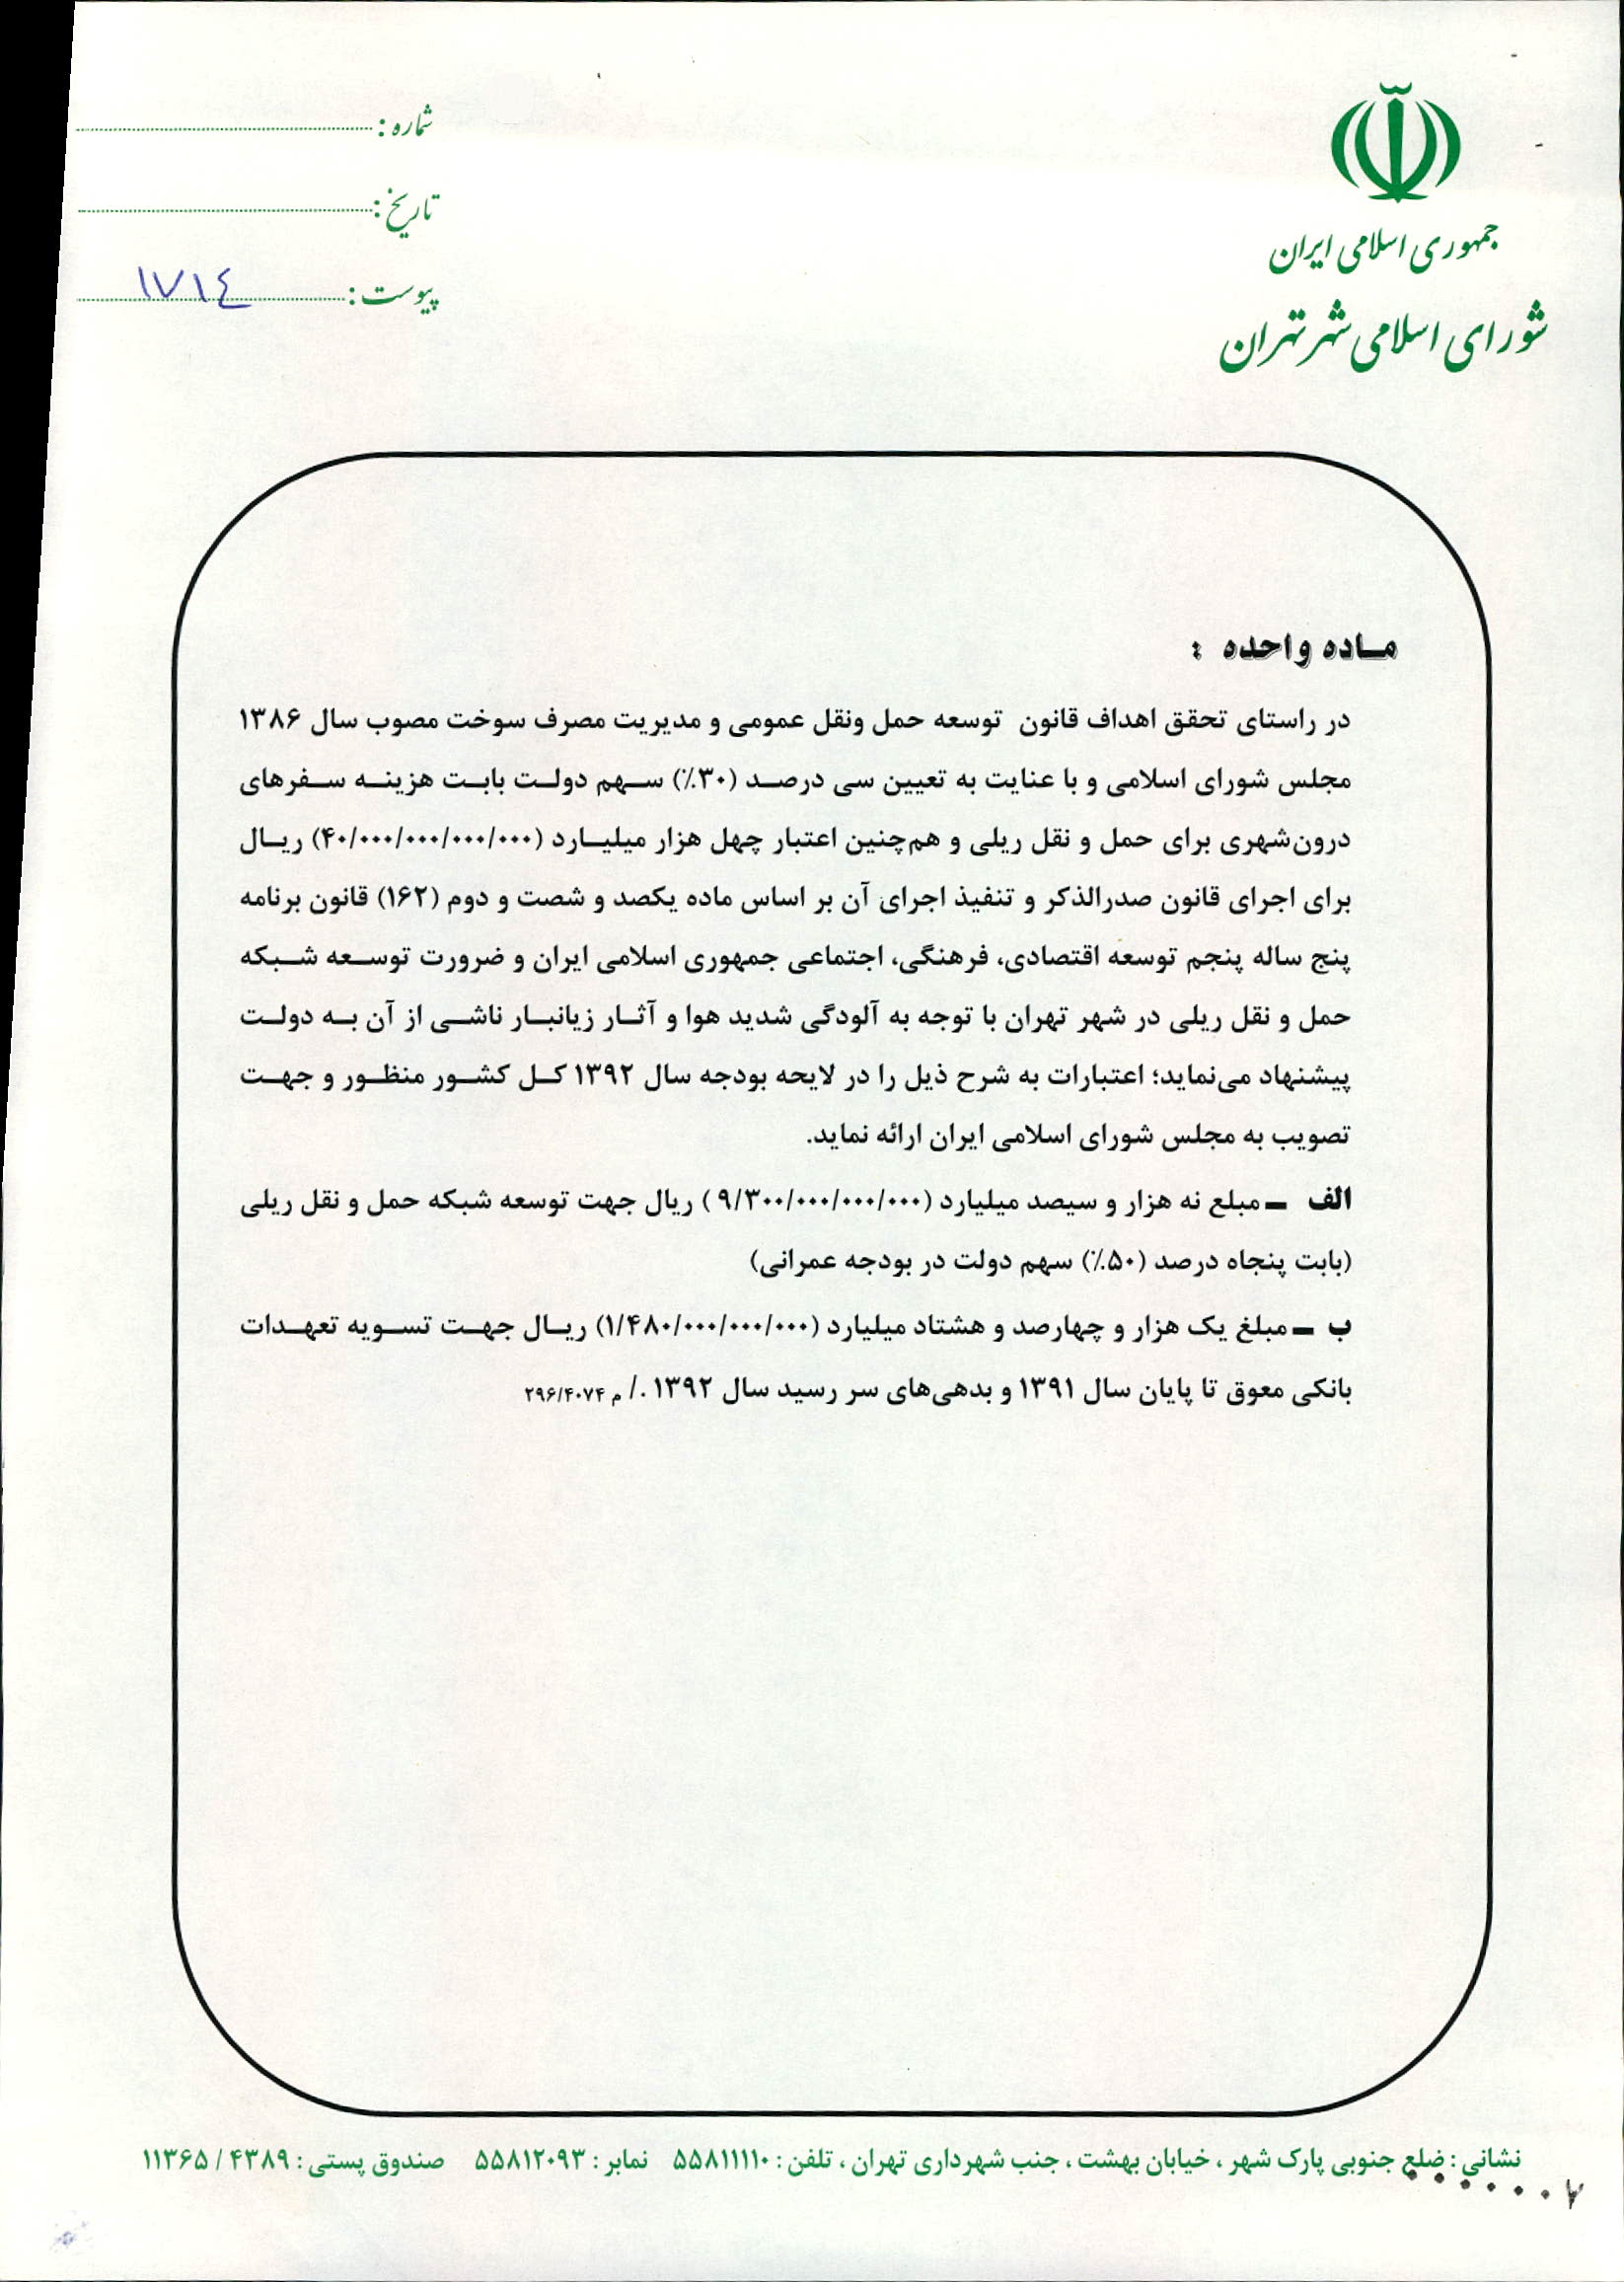 جمهوری اسلامی ایران
شورای اسلامی شهر تهران
شماره :
تاریخ :
پیوست : ١٧١٤
ماده واحده :
در راستای تحقق اهداف قانون توسعه حمل ونقل عمومی و مدیریت مصرف سوخت مصوب سال ۱۳۸۶
مجلس شورای اسلامی و با عنایت به تعیین سی درصد (۳۰٪) سهم دولت بابت هزینه سفرهای
درون‌شهری برای حمل و نقل ریلی و هم‌چنین اعتبار چهل هزار میلیارد (۴۰/۰۰۰/۰۰۰/۰۰۰/۰۰۰) ریال
برای اجرای قانون صدرالذکر و تنفیذ اجرای آن بر اساس ماده یکصد و شصت و دوم (۱۶۲) قانون برنامه
پنج ساله پنجم توسعه اقتصادی، فرهنگی، اجتماعی جمهوری اسلامی ایران و ضرورت توسعه شبکه
حمل و نقل ریلی در شهر تهران با توجه به آلودگی شدید هوا و آثار زیانبار ناشی از آن به دولت
پیشنهاد می‌نماید؛ اعتبارات به شرح ذیل را در لایحه بودجه سال ۱۳۹۲ کل کشور منظور و جهت
تصویب به مجلس شورای اسلامی ایران ارائه نماید.
الف – مبلغ نه هزار و سیصد میلیارد (۹/۳۰۰/۰۰۰/۰۰۰/۰۰۰ ) ریال جهت توسعه شبکه حمل و نقل ریلی
(بابت پنجاه درصد (۵۰٪) سهم دولت در بودجه عمرانی)
ب – مبلغ یک هزار و چهارصد و هشتاد میلیارد (۱/۴۸۰/۰۰۰/۰۰۰/۰۰۰) ریال جهت تسویه تعهدات
بانکی معوق تا پایان سال ۱۳۹۱ و بدهی‌های سر رسید سال ۱۳۹۲ ./ م ۲۹۶/۴۰۷۴
نشانی : ضلع جنوبی پارک شهر ، خیابان بهشت ، جنب شهرداری تهران ، تلفن : ۵۵۸۱۱۱۱۰ نمابر : ۵۵۸۱۲۰۹۳ صندوق پستی : ۴۳۸۹ / ۱۱۳۶۵